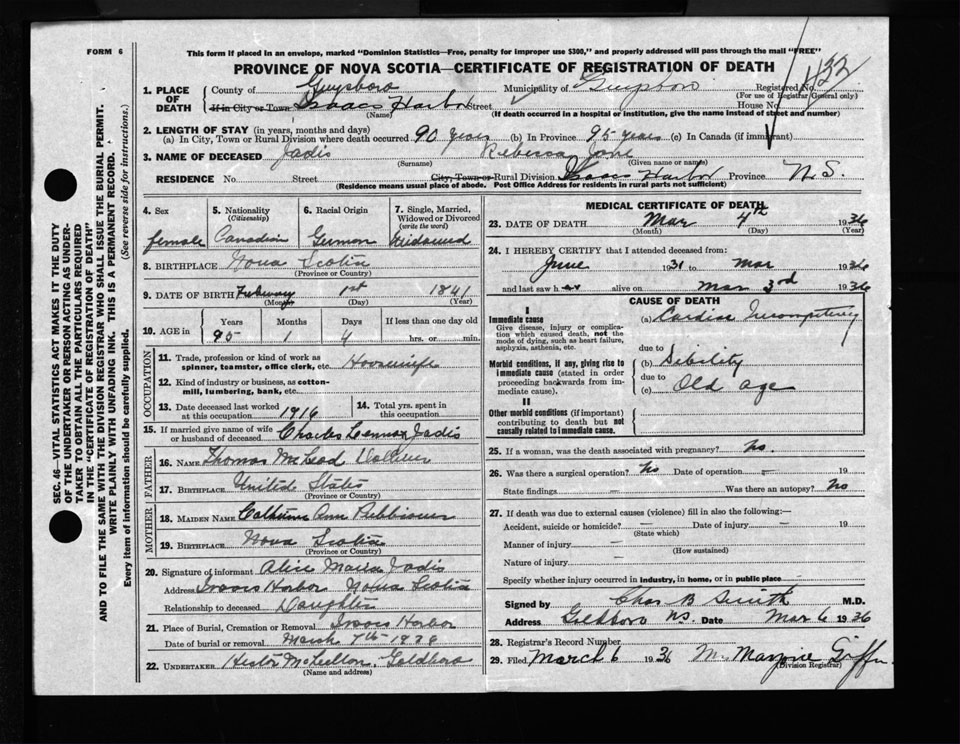 FORM 6
This form if placed in an envelope, marked "Dominion Statistics—Free, penalty for improper use $300," and properly addressed will pass through the mail "FREE"
PROVINCE OF NOVA SCOTIA—CERTIFICATE OF REGISTRATION OF DEATH
SEC. 46—VITAL STATISTICS ACT MAKES IT THE DUTY
OF THE UNDERTAKER OR PERSON ACTING AS UNDER-
TAKER TO OBTAIN ALL THE PARTICULARS REQUIRED
IN THE "CERTIFICATE OF REGISTRATION OF DEATH"
AND TO FILE THE SAME WITH THE DIVISION REGISTRAR WHO SHALL ISSUE THE BURIAL PERMIT.
WRITE PLAINLY WITH UNFADING INK. THIS IS A PERMANENT RECORD.
Every item of information should be carefully supplied. (See reverse side for instructions.)
1. PLACE OF DEATH County of Guysboro Municipality of Guysboro Registered No. 1432
(For use of Registrar General only)
If in City or Town Isaacs Harbor Street House No.
(Name) (If death occurred in a hospital or institution, give the name instead of street and number)
2. LENGTH OF STAY (in years, months and days)
(a) In City, Town or Rural Division where death occurred 90 years (b) In Province 95 years (c) In Canada (if immigrant)
3. NAME OF DECEASED Jadis Rebecca Jane
(Surname) (Given name or names)
RESIDENCE No. Street City, Town or Rural Division Isaacs Harbor Province N.S.
(Residence means usual place of abode. Post Office Address for residents in rural parts not sufficient)
4. Sex
female
5. Nationality
(Citizenship)
Canadian
6. Racial Origin
German
7. Single, Married, Widowed or Divorced
(write the word)
Widowed
8. BIRTHPLACE Nova Scotia
(Province or Country)
9. DATE OF BIRTH 1st 1841
(Month) (Day) (Year)
10. AGE in Years Months Days If less than one day old
95 1 4 hrs. or min.
OCCUPATION
11. Trade, profession or kind of work as spinner, teamster, office clerk, etc. Housewife
12. Kind of industry or business, as cotton-mill, lumbering, bank, etc.
13. Date deceased last worked at this occupation 1916
14. Total yrs. spent in this occupation
15. If married give name of wife or husband of deceased Charles Lennox Jadis
FATHER
16. NAME Thomas McLeod
17. BIRTHPLACE United States
(Province or Country)
MOTHER
18. MAIDEN NAME Ann
19. BIRTHPLACE Nova Scotia
(Province or Country)
20. Signature of informant Alice Maria Jadis
Address Isaacs Harbor Nova Scotia
Relationship to deceased Daughter
21. Place of Burial, Cremation or Removal Isaacs Harbor
Date of burial or removal March 7th
22. UNDERTAKER Goldboro
(Name and address)
MEDICAL CERTIFICATE OF DEATH
23. DATE OF DEATH Mar 4th 1936
(Month) (Day) (Year)
24. I HEREBY CERTIFY that I attended deceased from:
June 1931 to Mar 1936
and last saw her alive on Mar 3rd 1936
CAUSE OF DEATH
I
Immediate cause
Give disease, injury or complication which caused death, not the mode of dying, such as heart failure, asphyxia, asthenia, etc.
(a) Cardiac Incompetency
due to
Morbid conditions, if any, giving rise to immediate cause (stated in order proceeding backwards from immediate cause).
(b) Debility
due to
(c) Old age
II
Other morbid conditions (if important) contributing to death but not causally related to immediate cause.
25. If a woman, was the death associated with pregnancy? No.
26. Was there a surgical operation? No Date of operation — 19
State findings — Was there an autopsy? No
27. If death was due to external causes (violence) fill in also the following:—
Accident, suicide or homicide? — Date of injury — 19
(State which)
Manner of injury —
(How sustained)
Nature of injury —
Specify whether injury occurred in industry, in home, or in public place —
Signed by Chas B Smith M.D.
Address Goldboro N.S. Date Mar 6 1936
28. Registrar's Record Number
29. Filed March 6 1936 Marjorie Giffin
(Division Registrar)